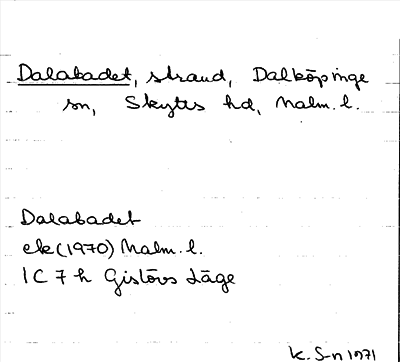 Dalabadet, strand, Dalköpinge
sn, Skytts hd, Malm. l.
Dalabadet
ek (1970) Malm. l.
1C 7h Gislövs Läge
K. S-n 1971